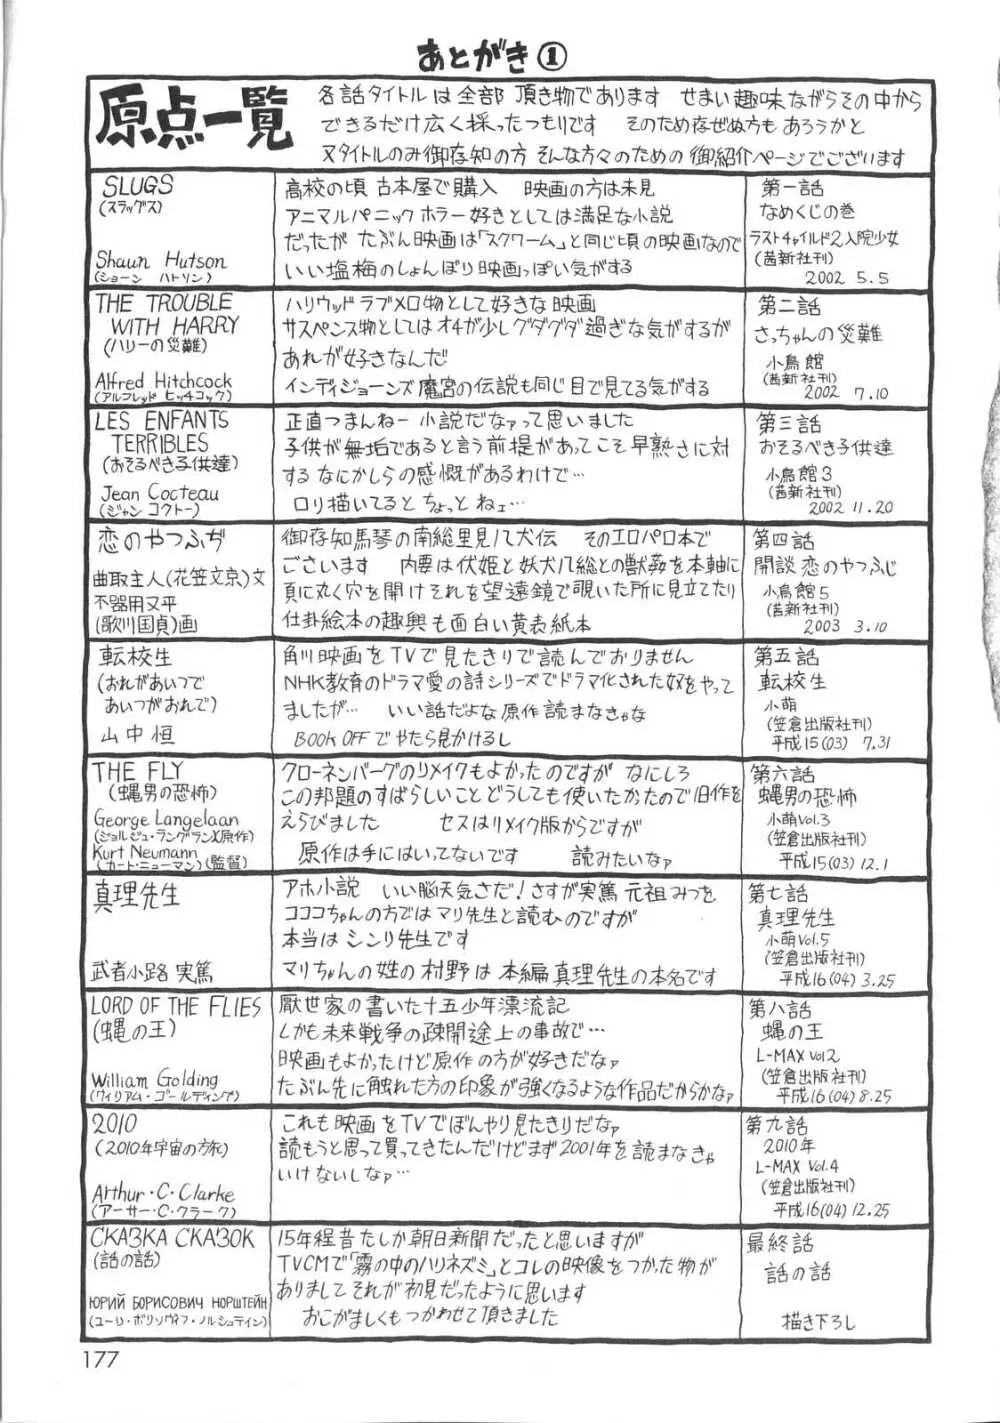 あとがき①
原点一覧
各話タイトルは全部 頂き物であります せまい趣味ながらその中から
できるだけ広く採ったつもりです そのため存ぜぬ方も あろうかと
又タイトルのみ御存知の方 そんな方々のための 御紹介ページでございます
SLUGS
(スラッグス)
Shaun Hutson
(ショーン ハトソン)
高校の頃 古本屋で購入 映画の方は未見
アニマルパニックホラー好きとしては満足な小説
だったが たぶん映画は「スクワーム」と同じ頃の映画なので
いい塩梅のしょんぼり映画っぽい気がする
第一話
なめくじの巻
ラストチャイルド2入院少女
(茜新社刊)
2002 5.5
THE TROUBLE
WITH HARRY
(ハリーの災難)
Alfred Hitchcock
(アルフレッド ヒッチコック)
ハリウッド ラブメロ物として好きな映画
サスペンス物としてはオチが少しグダグダ過ぎな気がするが
あれが好きなんだ
インディジョーンズ魔宮の伝説も同じ目で見てる気がする
第二話
さっちゃんの災難
小鳥館
(茜新社刊)
2002 7.10
LES ENFANTS
TERRIBLES
(おそるべき子供達)
Jean Cocteau
(ジャン コクトー)
正直つまんねー小説だなァって思いました
子供が無垢であると言う前提があってこそ早熟さに対
するなにかしらの感慨があるわけで…
ロリ描いてると ちょっと ねェ…
第三話
おそるべき子供達
小鳥館3
(茜新社刊)
2002 11.20
恋のやつふぢ
曲取主人(花笠文京)文
不器用又平
(歌川国貞)画
御存知馬琴の南総里見八犬伝 そのエロパロ本で
ございます 内要は伏姫と妖犬八総との獣姦を本軸に
頁に丸く穴を開けそれを望遠鏡で覗いた所に見立てたり
仕掛絵本の趣興も面白い黄表紙本
第四話
開談 恋のやつふじ
小鳥館5
(茜新社刊)
2003 3.10
転校生
(おれがあいつで
あいつがおれで)
山中恒
角川映画をTVで見たきりで読んでおりません
NHK教育のドラマ愛の詩シリーズでドラマ化された奴をやって
ましたが… いい話だよな 原作読まなきゃな
BOOK OFFでやたら見かけるし
第五話
転校生
小萌
(笠倉出版社刊)
平成15(03) 7.31
THE FLY
(蝿男の恐怖)
George Langelaan
(ジョルジュ・ランジュラン原作)
Kurt Neumann
(カート・ニューマン)(監督)
クローネンバーグのリメイクもよかったのですが なにしろ
この邦題のすばらしいこと どうしても使いたかったので旧作を
えらびました セスはリメイク版からですが
原作は手にはいってないです 読みたいなァ
第六話
蝿男の恐怖
小萌Vol.3
(笠倉出版社刊)
平成15(03) 12.1
真理先生
武者小路 実篤
アホ小説 いい脳天気さだ!さすが実篤 元祖みつを
ココココちゃんの方ではマリ先生と読むのですが
本当は シンリ先生です
マリちゃんの姓の 村野は 本編真理先生の本名です
第七話
真理先生
小萌Vol.5
(笠倉出版社刊)
平成16(04) 3.25
LORD OF THE FLIES
(蝿の王)
William Golding
(ウィリアム・ゴールディング)
厭世家の書いた十五少年漂流記
しかも未来戦争の疎開途上の事故で…
映画もよかったけど原作の方が好きだなァ
たぶん先に触れた方の印象が強くなるような作品だからかなァ
第八話
蝿の王
L-MAX Vol2
(笠倉出版社刊)
平成16(04) 8.25
2010
(2010年宇宙の旅)
Arthur・C・Clarke
(アーサー・C・クラーク)
これも映画をTVでぼんやり見たきりだなァ
読もうと思って買ってきたんだけどまず2001年を読まなきゃ
いけないしなァ…
第九話
2010年
L-MAX Vol.4
(笠倉出版社刊)
平成16(04) 12.25
СКАЗКА СКАЗОК
(話の話)
ЮРИЙ БОРИСОВИЧ НОРШТЕЙН
(ユーリ・ボリソヴィフ・ノルシュテイン)
15年程昔たしか朝日新聞だったと思いますが
TVCMで「霧の中のハリネズミ」とコレの映像をつかった物が
ありまして それが初見だったように思います
おこがましくもつかわせて頂きました
最終話
話の話
描き下ろし
177